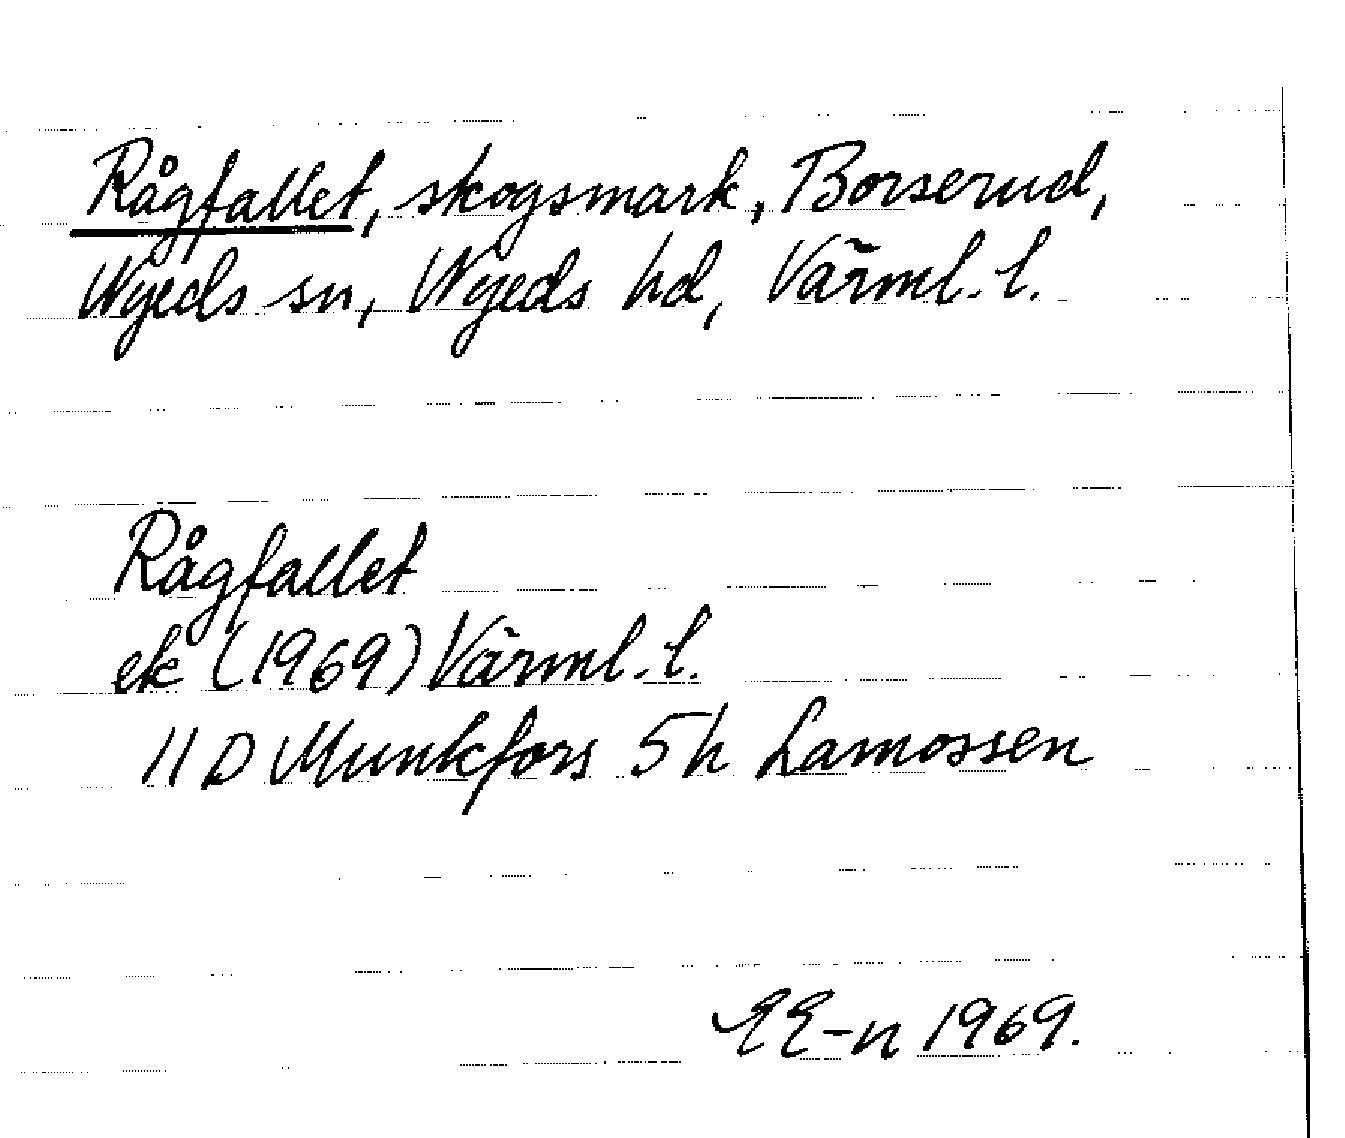 Rågfallet, skogsmark, Borserud,
Nyeds sn, Nyeds hd, Värml. l.
Rågfallet
ek (1969) Värml. l.
11 D Munkfors 5 h Lamossen
EE-n 1969.